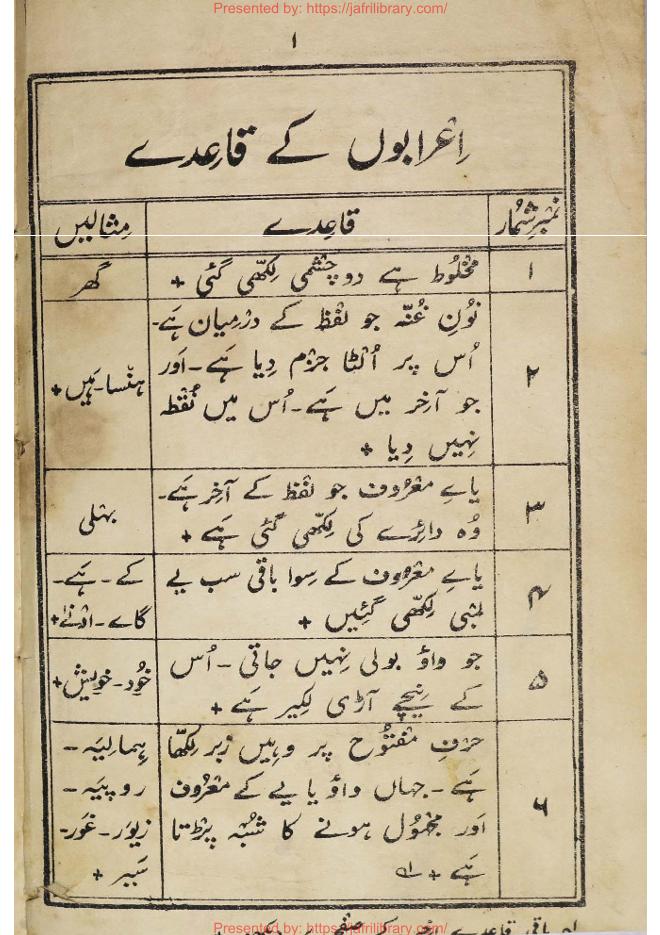 Presented by: https://jafrilibrary.com/
۱
اِعْرابوں کے قاعِدے
نمبرشُمار قاعِدے مِثالیں
۱ مخْلُوط ہے دو چشْمی لِکھّی گئی + گھر
۲ نُونِ غُنّہ جو لفْظ کے درْمِیان ہَے۔
اُس پر اُلٹا جزْم دِیا ہَے۔ اَور
جو آخِر میں ہَے۔ اُس میں نُقْطہ
نہِیں دِیا +
ہنْسا۔ ہَیں +
۳ یاےِ معْرُوف جو لفْظ کے آخِر ہَے۔
وُہ دائِرے کی لِکھّی گئی ہَے +
بہلی
۴ یاےِ معْرُوف کے سِوا باقی سب یے
لمْبی لِکھّی گئِیں +
کے۔ ہَے۔
گاے۔ ادْنےٰ +
۵ جو واؤ بولی نہِیں جاتی۔ اُس
کے نِیچے آڑی لکِیر ہَے +
خود۔ خویش +
۶ حرْفِ مفْتُوح پر وہِیں زبر لِکھّا
ہَے۔ جہاں واؤ یا یے کے معْرُوف
اَور مجْہُول ہونے کا شُبْہ پڑْتا
ہَے +
ہِمالِیَہ۔
روپِیَہ۔
زیوَر۔ غَور۔
سَیر +
باقی قاعدے
Presented by: https://jafrilibrary.com/